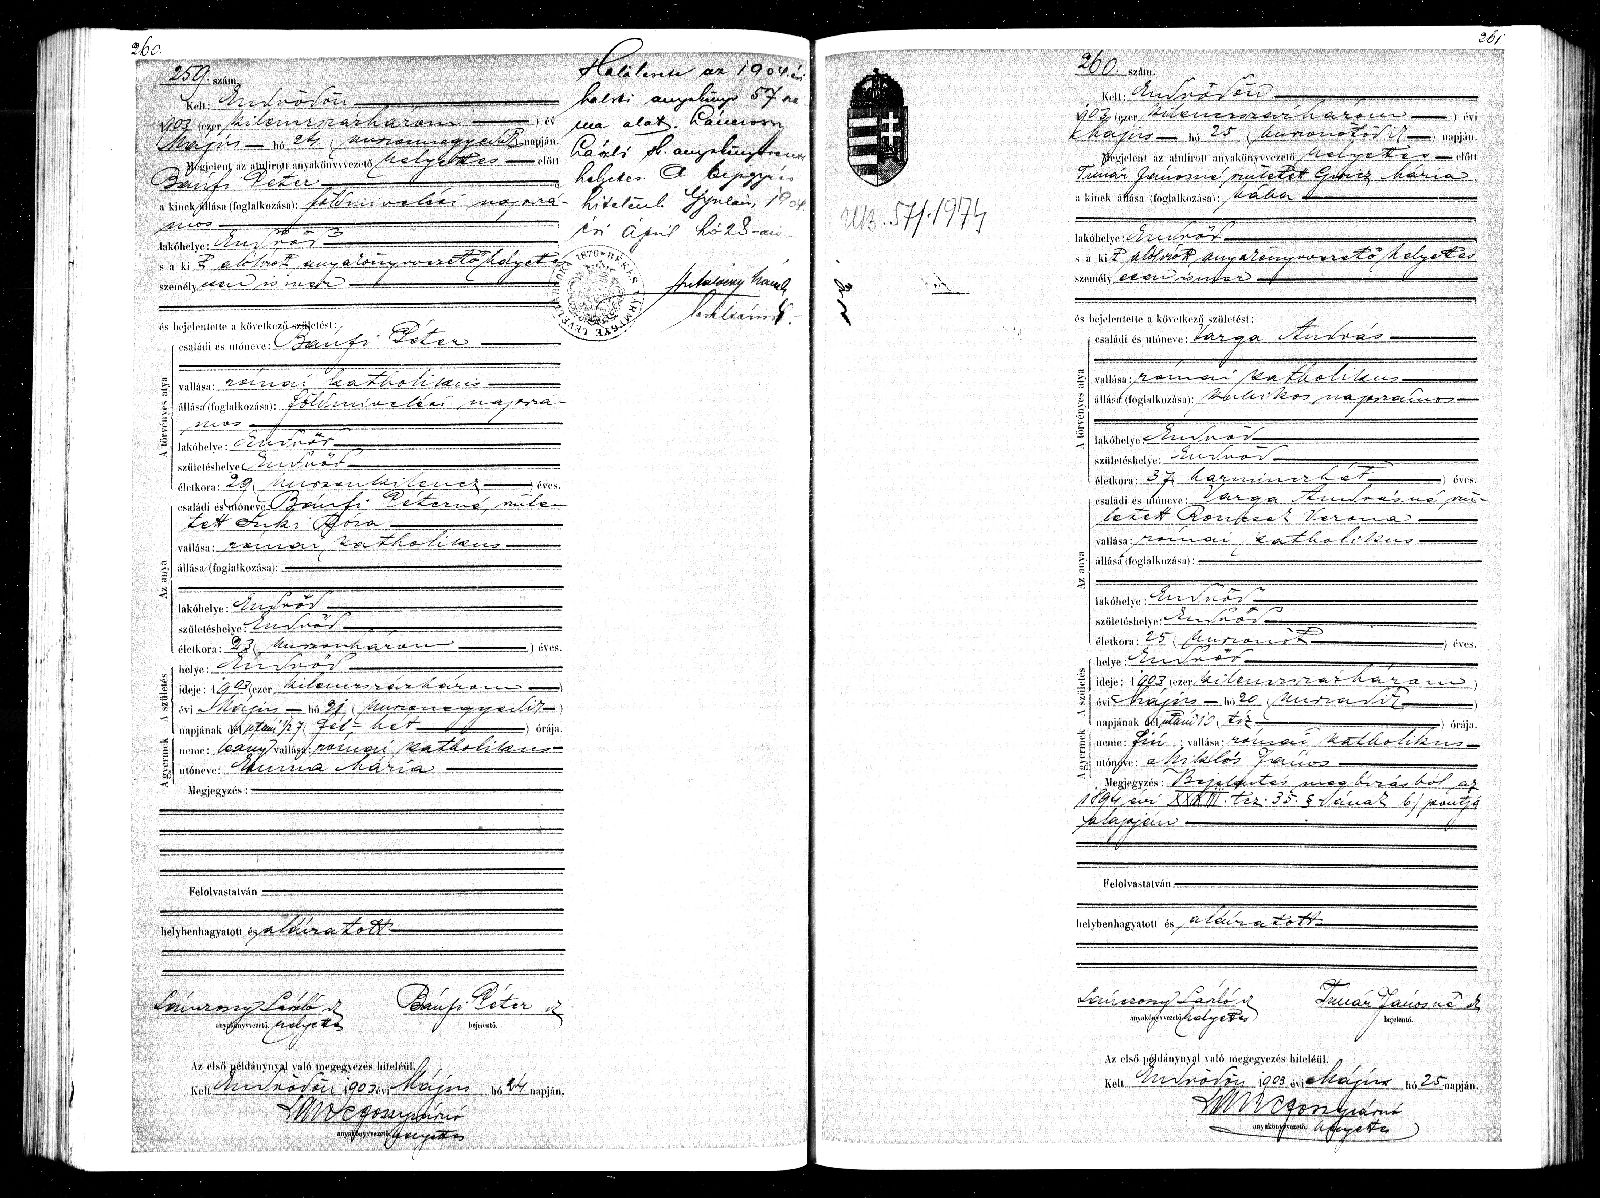 260.
259. szám.
Kelt: Endrődön
1903 (ezer kilenczszázhárom) évi
Május hó 24 (huszonnegyedik) napján.
Megjelent az alulirott anyakönyvvezető helyettes előtt
Bánfi Péter
a kinek állása (foglalkozása): földmivelési napszá-
mos
lakóhelye: Endrőd
s a kit alólirott anyakönyvvezető helyettes
személyesen ismer
és bejelentette a következő születést:
A törvényes atya
családi és utóneve: Bánfi Péter
vallása: római katholikus
állása (foglalkozása): földmivelési napszá-
mos
lakóhelye: Endrőd
születéshelye: Endrőd
életkora: 29 (huszonkilencz) éves.
Az anya
családi és utóneve: Bánfi Péterné, szüle-
tett
vallása: római katholikus
állása (foglalkozása):
lakóhelye: Endrőd
születéshelye: Endrőd
életkora: 23 (huszonhárom) éves.
A születés
helye: Endrőd
ideje: 1903 (ezer kilenczszázhárom)
évi Május hó 21 (huszonegyedik)
napjának délutáni ½7 (fél hét) órája.
A gyermek
neme: leány vallása: római katholikus
utóneve: Emma Mária
Megjegyzés:
Felolvastatván
helybenhagyatott és aláiratott
Lánczony László
anyakönyvvezető helyettes
Bánfi Péter
bejelentő.
Az első példánynyal való megegyezés hiteléül.
Kelt Endrődön 1903 évi Május hó 24 napján.
anyakönyvvezető helyettes
Halálesete az 1904. évi
halotti anyakönyv 57 szá
ma alatt.
László anyakönyvvezető
helyettes. A bejegyzés
hiteléül. Gyulán, 1904.
évi Április hó 28-án
261
260. szám.
Kelt: Endrődön
1903 (ezer kilenczszázhárom) évi
Május hó 25 (huszonötödik) napján.
Megjelent az alulirott anyakönyvvezető helyettes előtt
Timár Jánosné született Mária
a kinek állása (foglalkozása): bába
lakóhelye: Endrőd
s a kit alólirott anyakönyvvezető helyettes
személyesen ismer
és bejelentette a következő születést:
A törvényes atya
családi és utóneve: Varga András
vallása: római katholikus
állása (foglalkozása): kubikos napszámos
lakóhelye: Endrőd
születéshelye: Endrőd
életkora: 37 (harminczhét) éves.
Az anya
családi és utóneve: Varga Andrásné szü-
letett Verona
vallása: római katholikus
állása (foglalkozása):
lakóhelye: Endrőd
születéshelye: Endrőd
életkora: 25 (huszonöt) éves.
A születés
helye: Endrőd
ideje: 1903 (ezer kilenczszázhárom)
évi Május hó 20 (huszadik)
napjának délutáni 10 (tiz) órája.
A gyermek
neme: fiú; vallása: római katholikus
utóneve: Miklós János
Megjegyzés: Bejelentés megbizásból az
1894 évi XXXIII. tcz. 35. § -ának b) pontja
alapján
Felolvastatván
helybenhagyatott és aláiratott
Lánczony László
anyakönyvvezető helyettes
Timár Jánosné
bejelentő.
Az első példánynyal való megegyezés hiteléül.
Kelt Endrődön 1903 évi Május hó 25 napján.
anyakönyvvezető helyettes